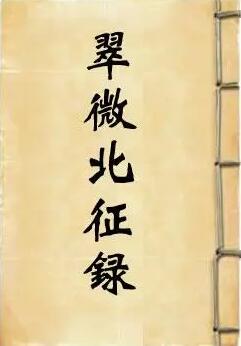 翠微北征録